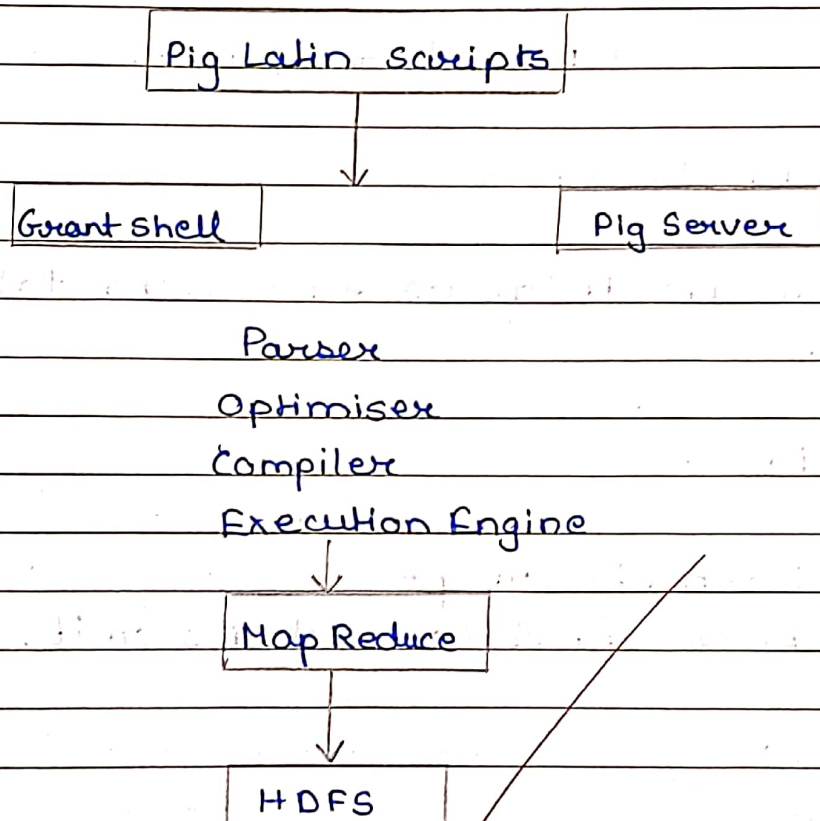 Pig Latin scripts
Grant shell Pig Server
Parser
Optimiser
Compiler
Execution Engine
Map Reduce
HDFS